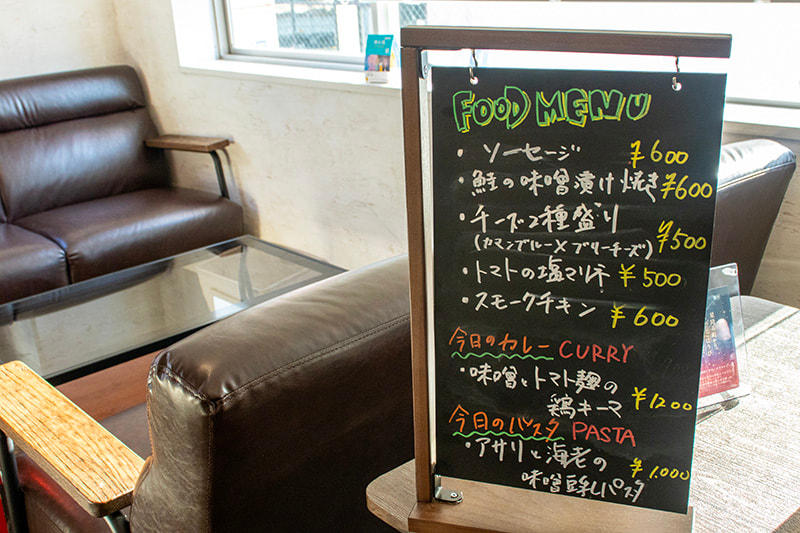 FOOD MENU
・ソーセージ ¥600
・鮭の味噌漬け焼き ¥600
・チーズ2種盛り
(カマンブルー×ブリーチーズ) ¥500
・トマトの塩マリネ ¥500
・スモークチキン ¥600
今日のカレー CURRY
・味噌とトマト麹の
鶏キーマ ¥1200
今日のパスタ PASTA
・アサリと海老の
味噌豆乳パスタ ¥1,000